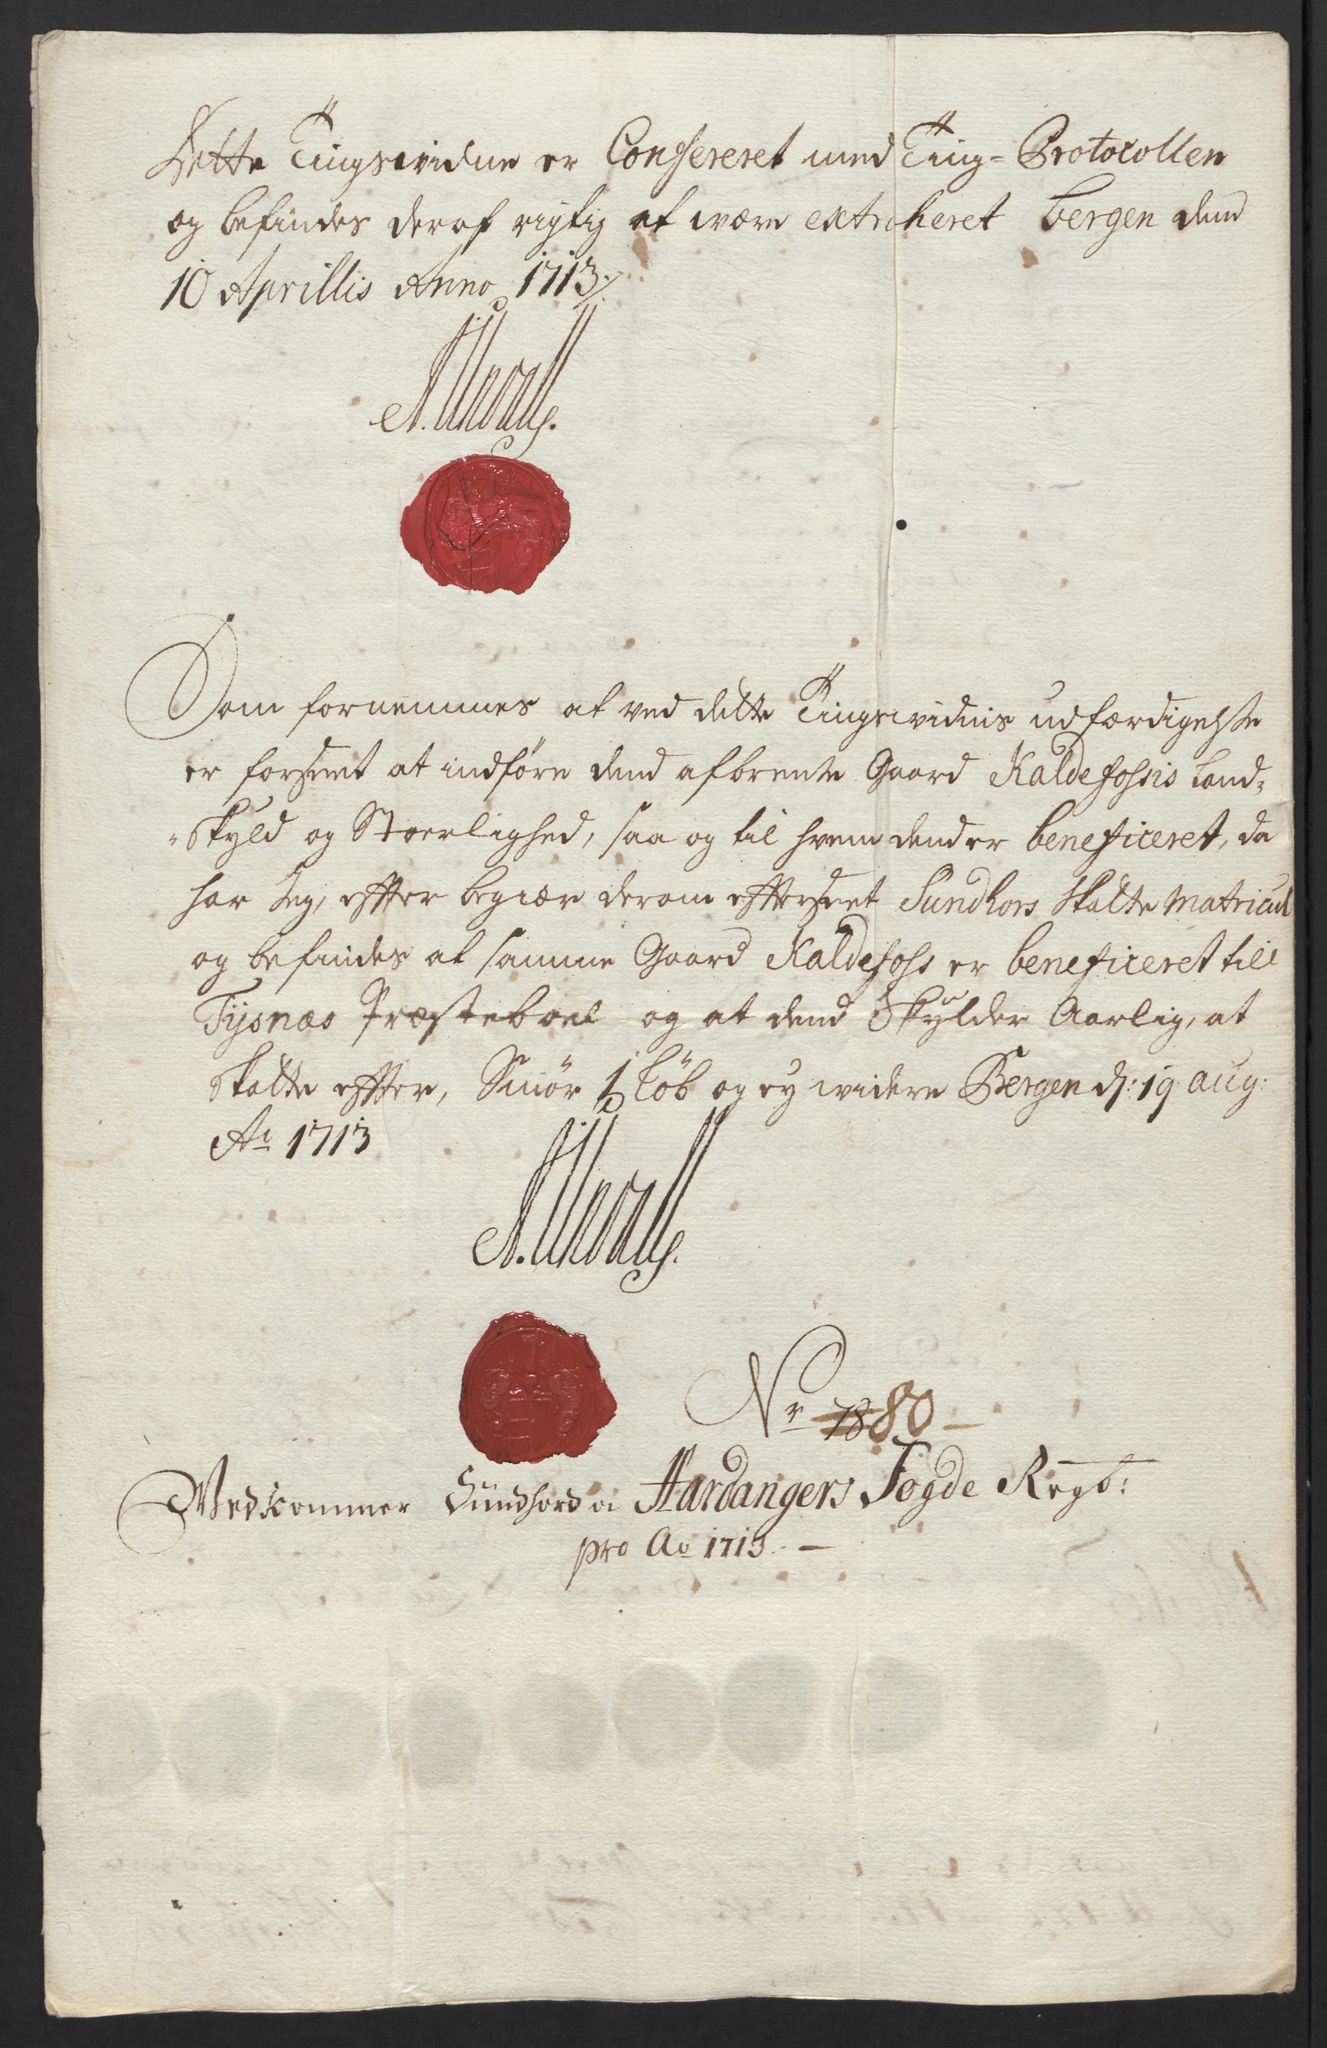 Dette Tingsvidne er Confereret med Ting-Protocollen
og befindes deraf rigtig at være extraheret Bergen dend
10 Aprillis Anno 1713
Som fornemmes at ved dette Tingsvidnis udfærdigelse
er forseet at indføre dend afbrente Gaard Kaldefossis Land-
skyld og Stoerlighed, saa og til hvem dend er beneficeret, da
har Jeg, effter begiær derom efterseet Sundhors Skatte Matricul
og befindes at samme Gaard Kaldefoss er beneficeret till
Tysnæs Præsteboel og at dend Skylder Aarlig, at
skatte effter, Smør 1 Løb og ey widere Bergen d: 19 aug:
Ao 1713
Nr 78 80
Vedkommer Sundhord oc Hardangers Fogde Regb:
pro Ao 1713